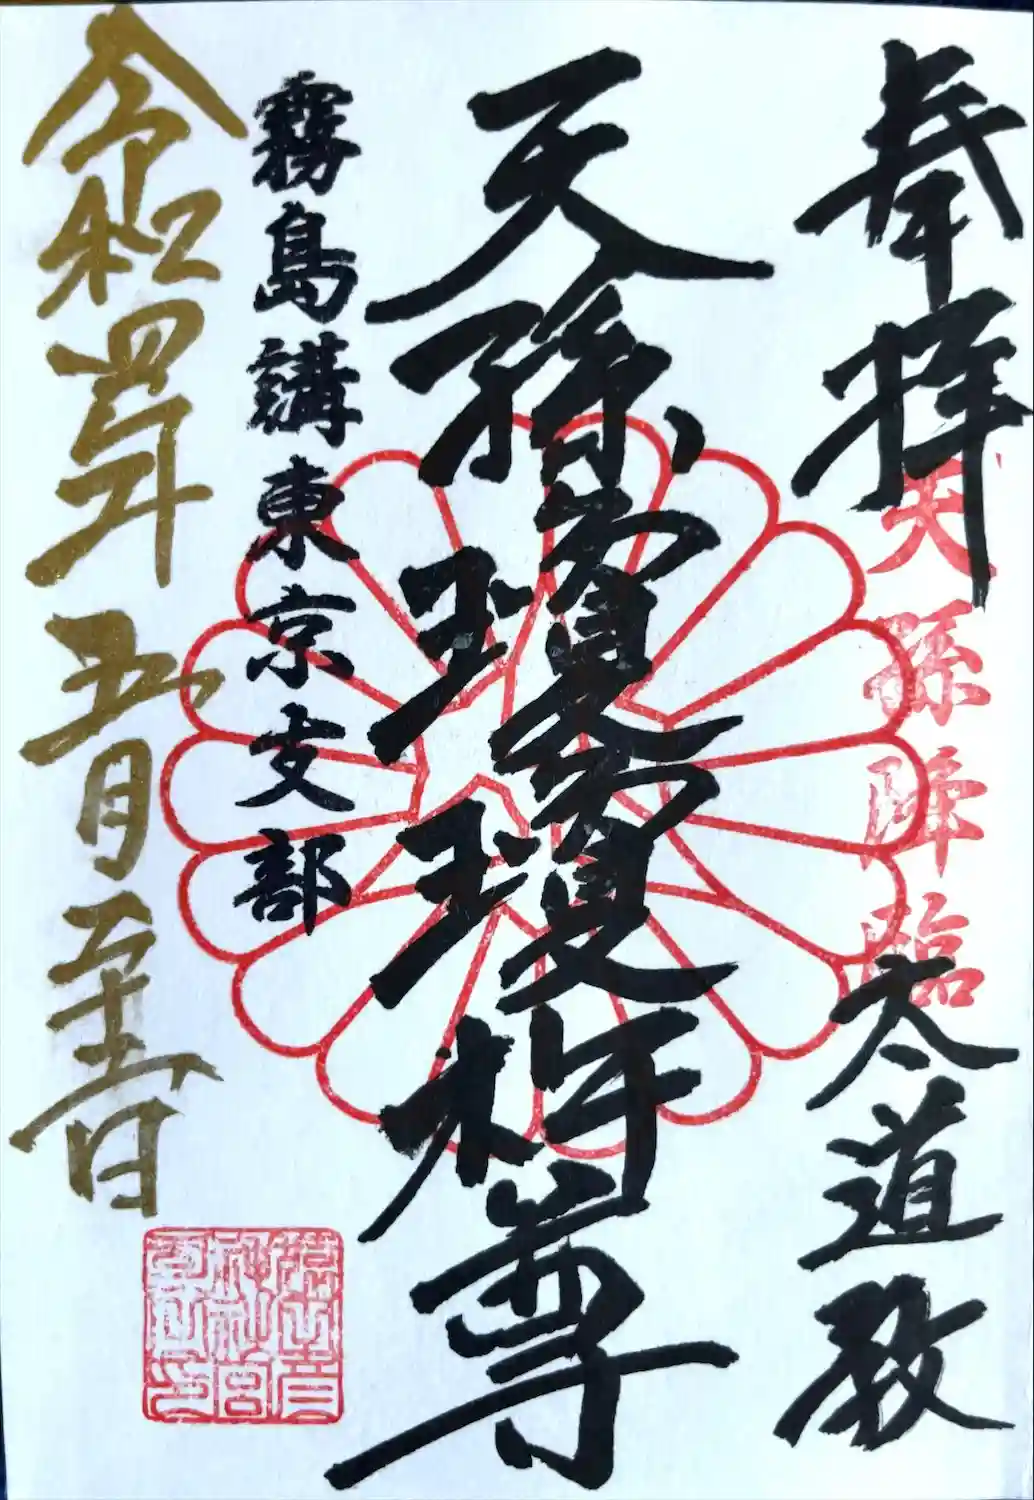 奉拝
天孫降臨
太道教
天孫瓊瓊杵尊
霧島講東京支部
令和四年五月